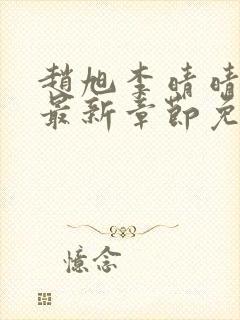 趙旭李晴晴
最新章節免
憶念